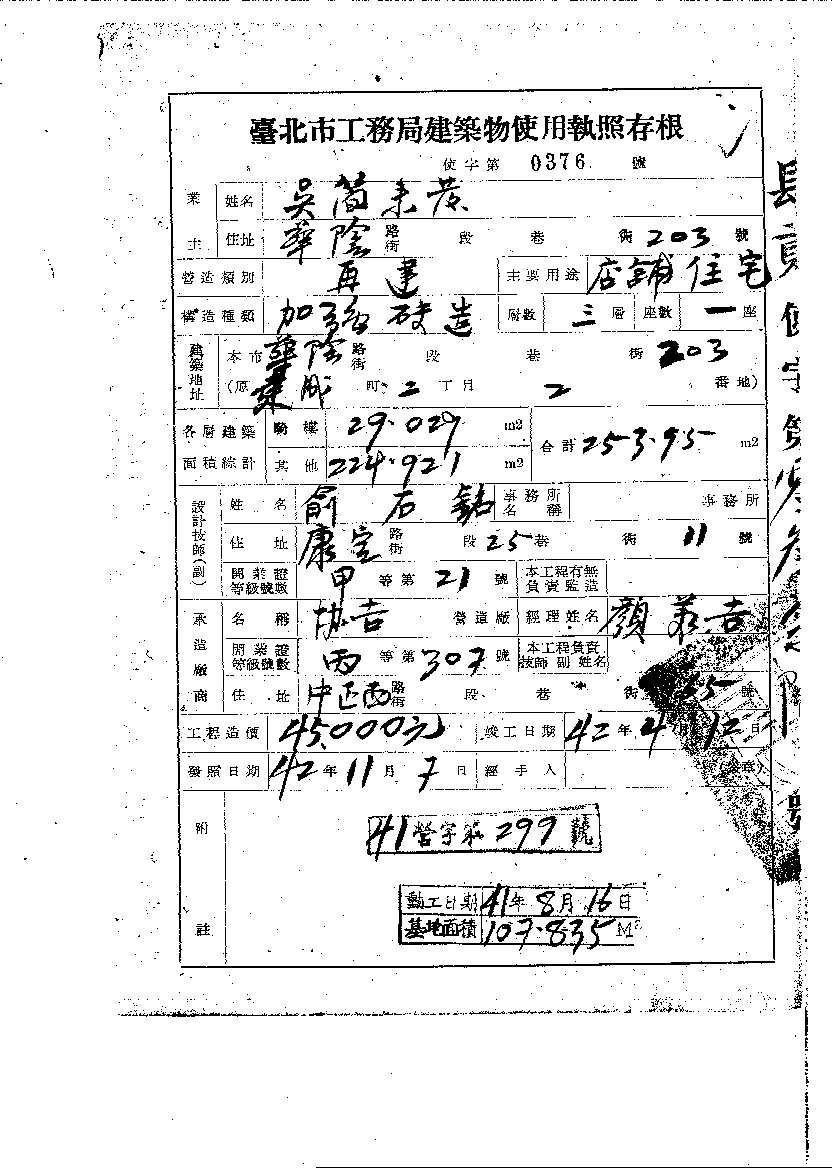 臺北市工務局建築物使用執照存根
使字第 0376 號
業主 姓名 吳簡未
住址 華陰 路街 段 巷 街 203 號
營造類別 再建 主要用途 店鋪住宅
構造種類 加強磚造 層數 三 層 座數 一 座
建築地址 本市 華陰 路街 段 巷 街 203
(原 建成 町 二 丁目 2 番地)
各層建築面積綜計 騎樓 29.029 m2 合計 253.95 m2
其他 224.921 m2
設計技師(副) 姓名 俞石銘 事務所名稱 事務所
住址 康定 路街 段 25 巷 街 11 號
開業證等級號數 甲 等第 21 號 本工程有無負責監造
承造廠商 名稱 協吉 營造廠 經理姓名 顏 吉
開業證等級號數 丙 等第 307 號 本工程負責技師副姓名
住址 中正西 路街 段 巷 街 65 號
工程造價 45,000元 竣工日期 42 年 4 月 12 日
發照日期 42 年 11 月 7 日 經手人 (簽章)
附註
41營字第299號
動工日期 41年8月16日
基地面積 107.835 M²